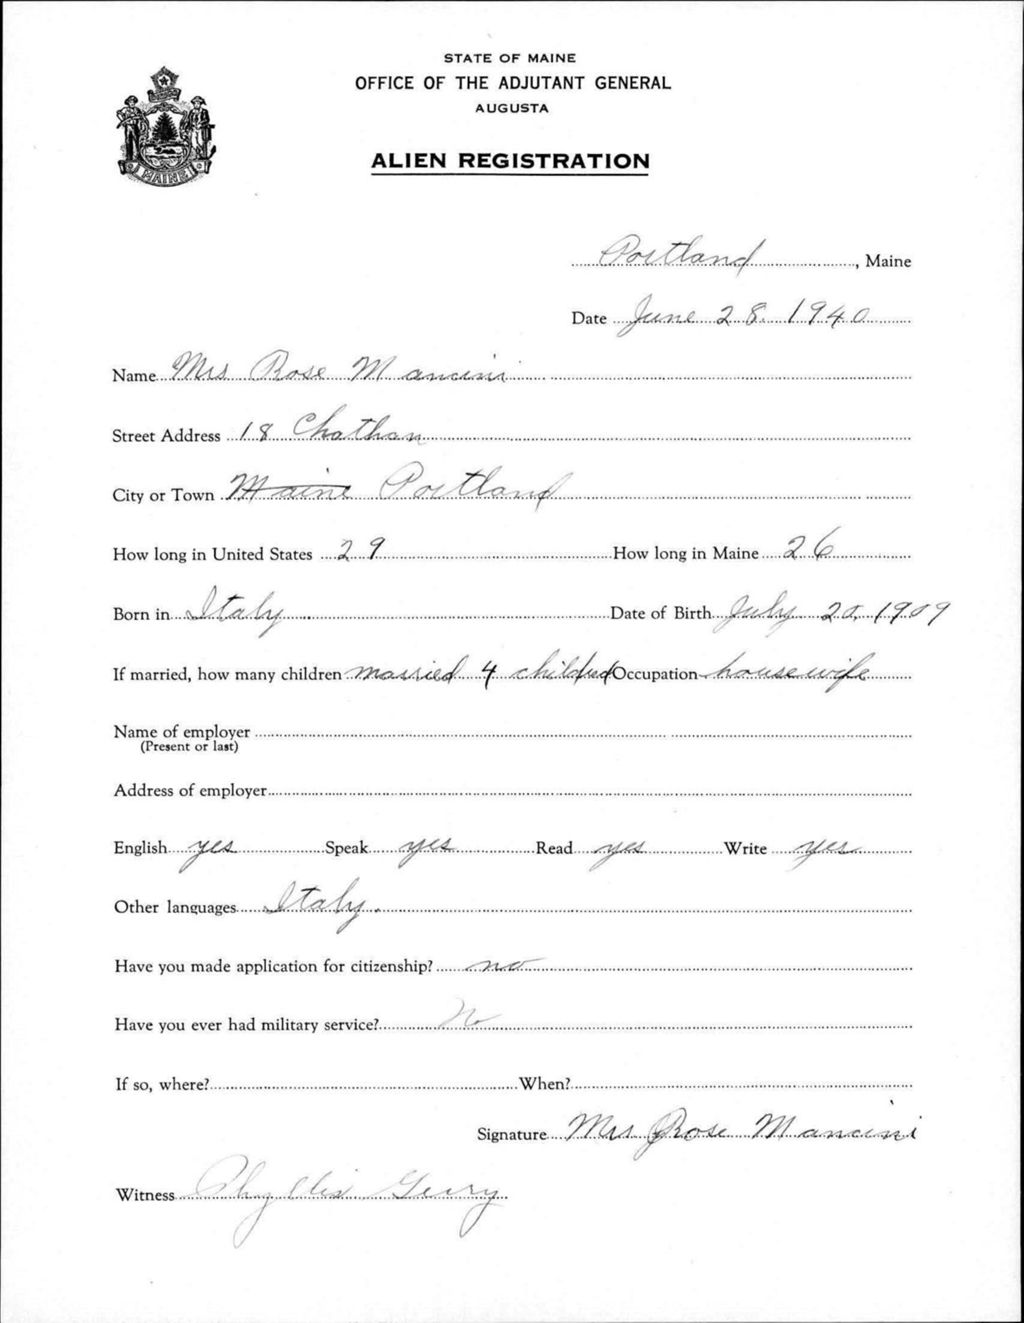 STATE OF MAINE
OFFICE OF THE ADJUTANT GENERAL
AUGUSTA
MAINE
ALIEN REGISTRATION
Portland, Maine
Date June 28. 1940
Name Mrs Rose Mancini
Street Address 18 Chathan
City or Town Maine Portland
How long in United States 29 How long in Maine 26
Born in Italy Date of Birth July 20, 1909
If married, how many children married 4 children Occupation housewife
Name of employer
(Present or last)
Address of employer
English yes Speak yes Read yes Write yes
Other languages Italy.
Have you made application for citizenship? no
Have you ever had military service? No
If so, where? When?
Signature Mrs Rose Mancini
Witness Phyllis